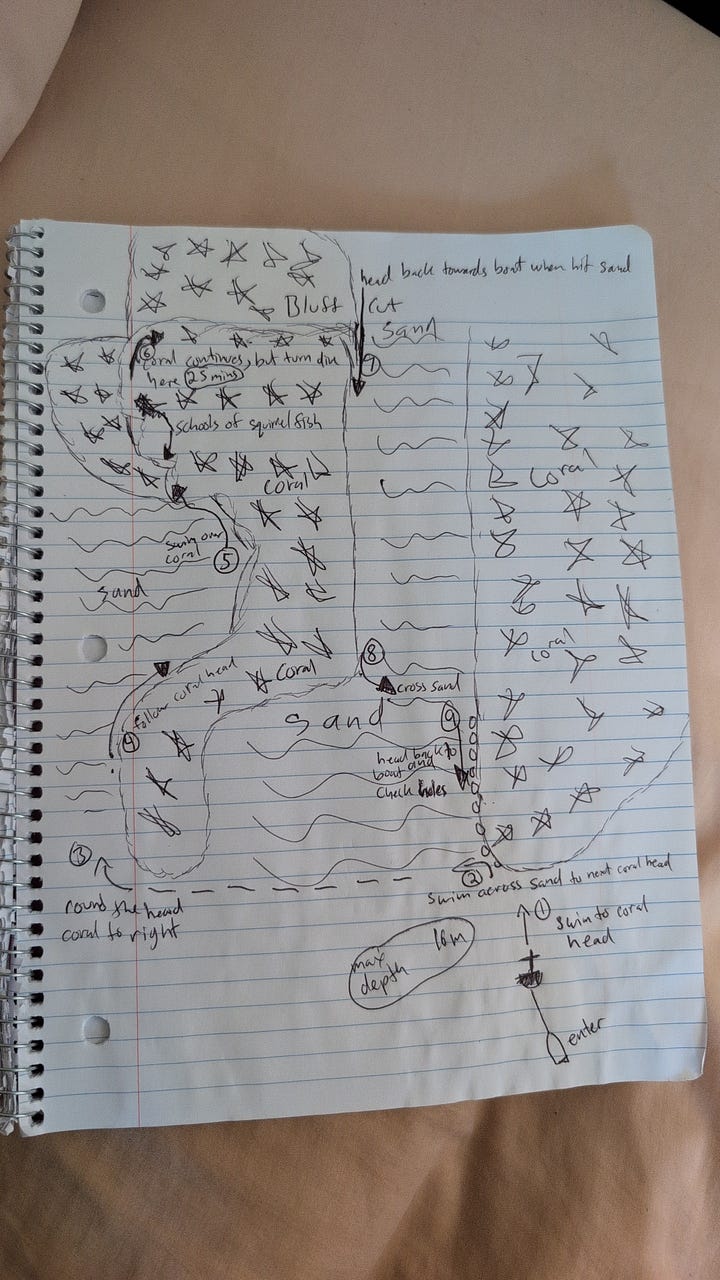 head back towards boat when hit sand
Bluff
cut
Sand
7
6
coral continues, but turn dive
here 25 mins
schools of squirrel fish
coral
coral
swim over
coral
5
Sand
coral
8
follow coral head
Coral
cross sand
4
Sand
9
head back to
boat and
check holes
3
2
swim across sand to next coral head
round the head
coral to right
1
swim to coral
head
max 16m
depth
enter